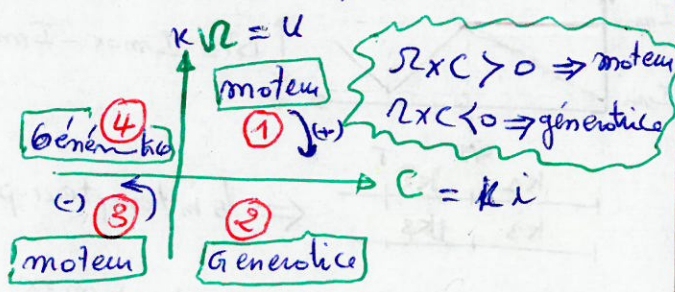 K Ω = U
moteur
Ω x C > 0 ⇒ moteur
Ω x C < 0 ⇒ génératrice
④
Génératrice
① (+)
C = k i
(-)
③
②
moteur
Generatice